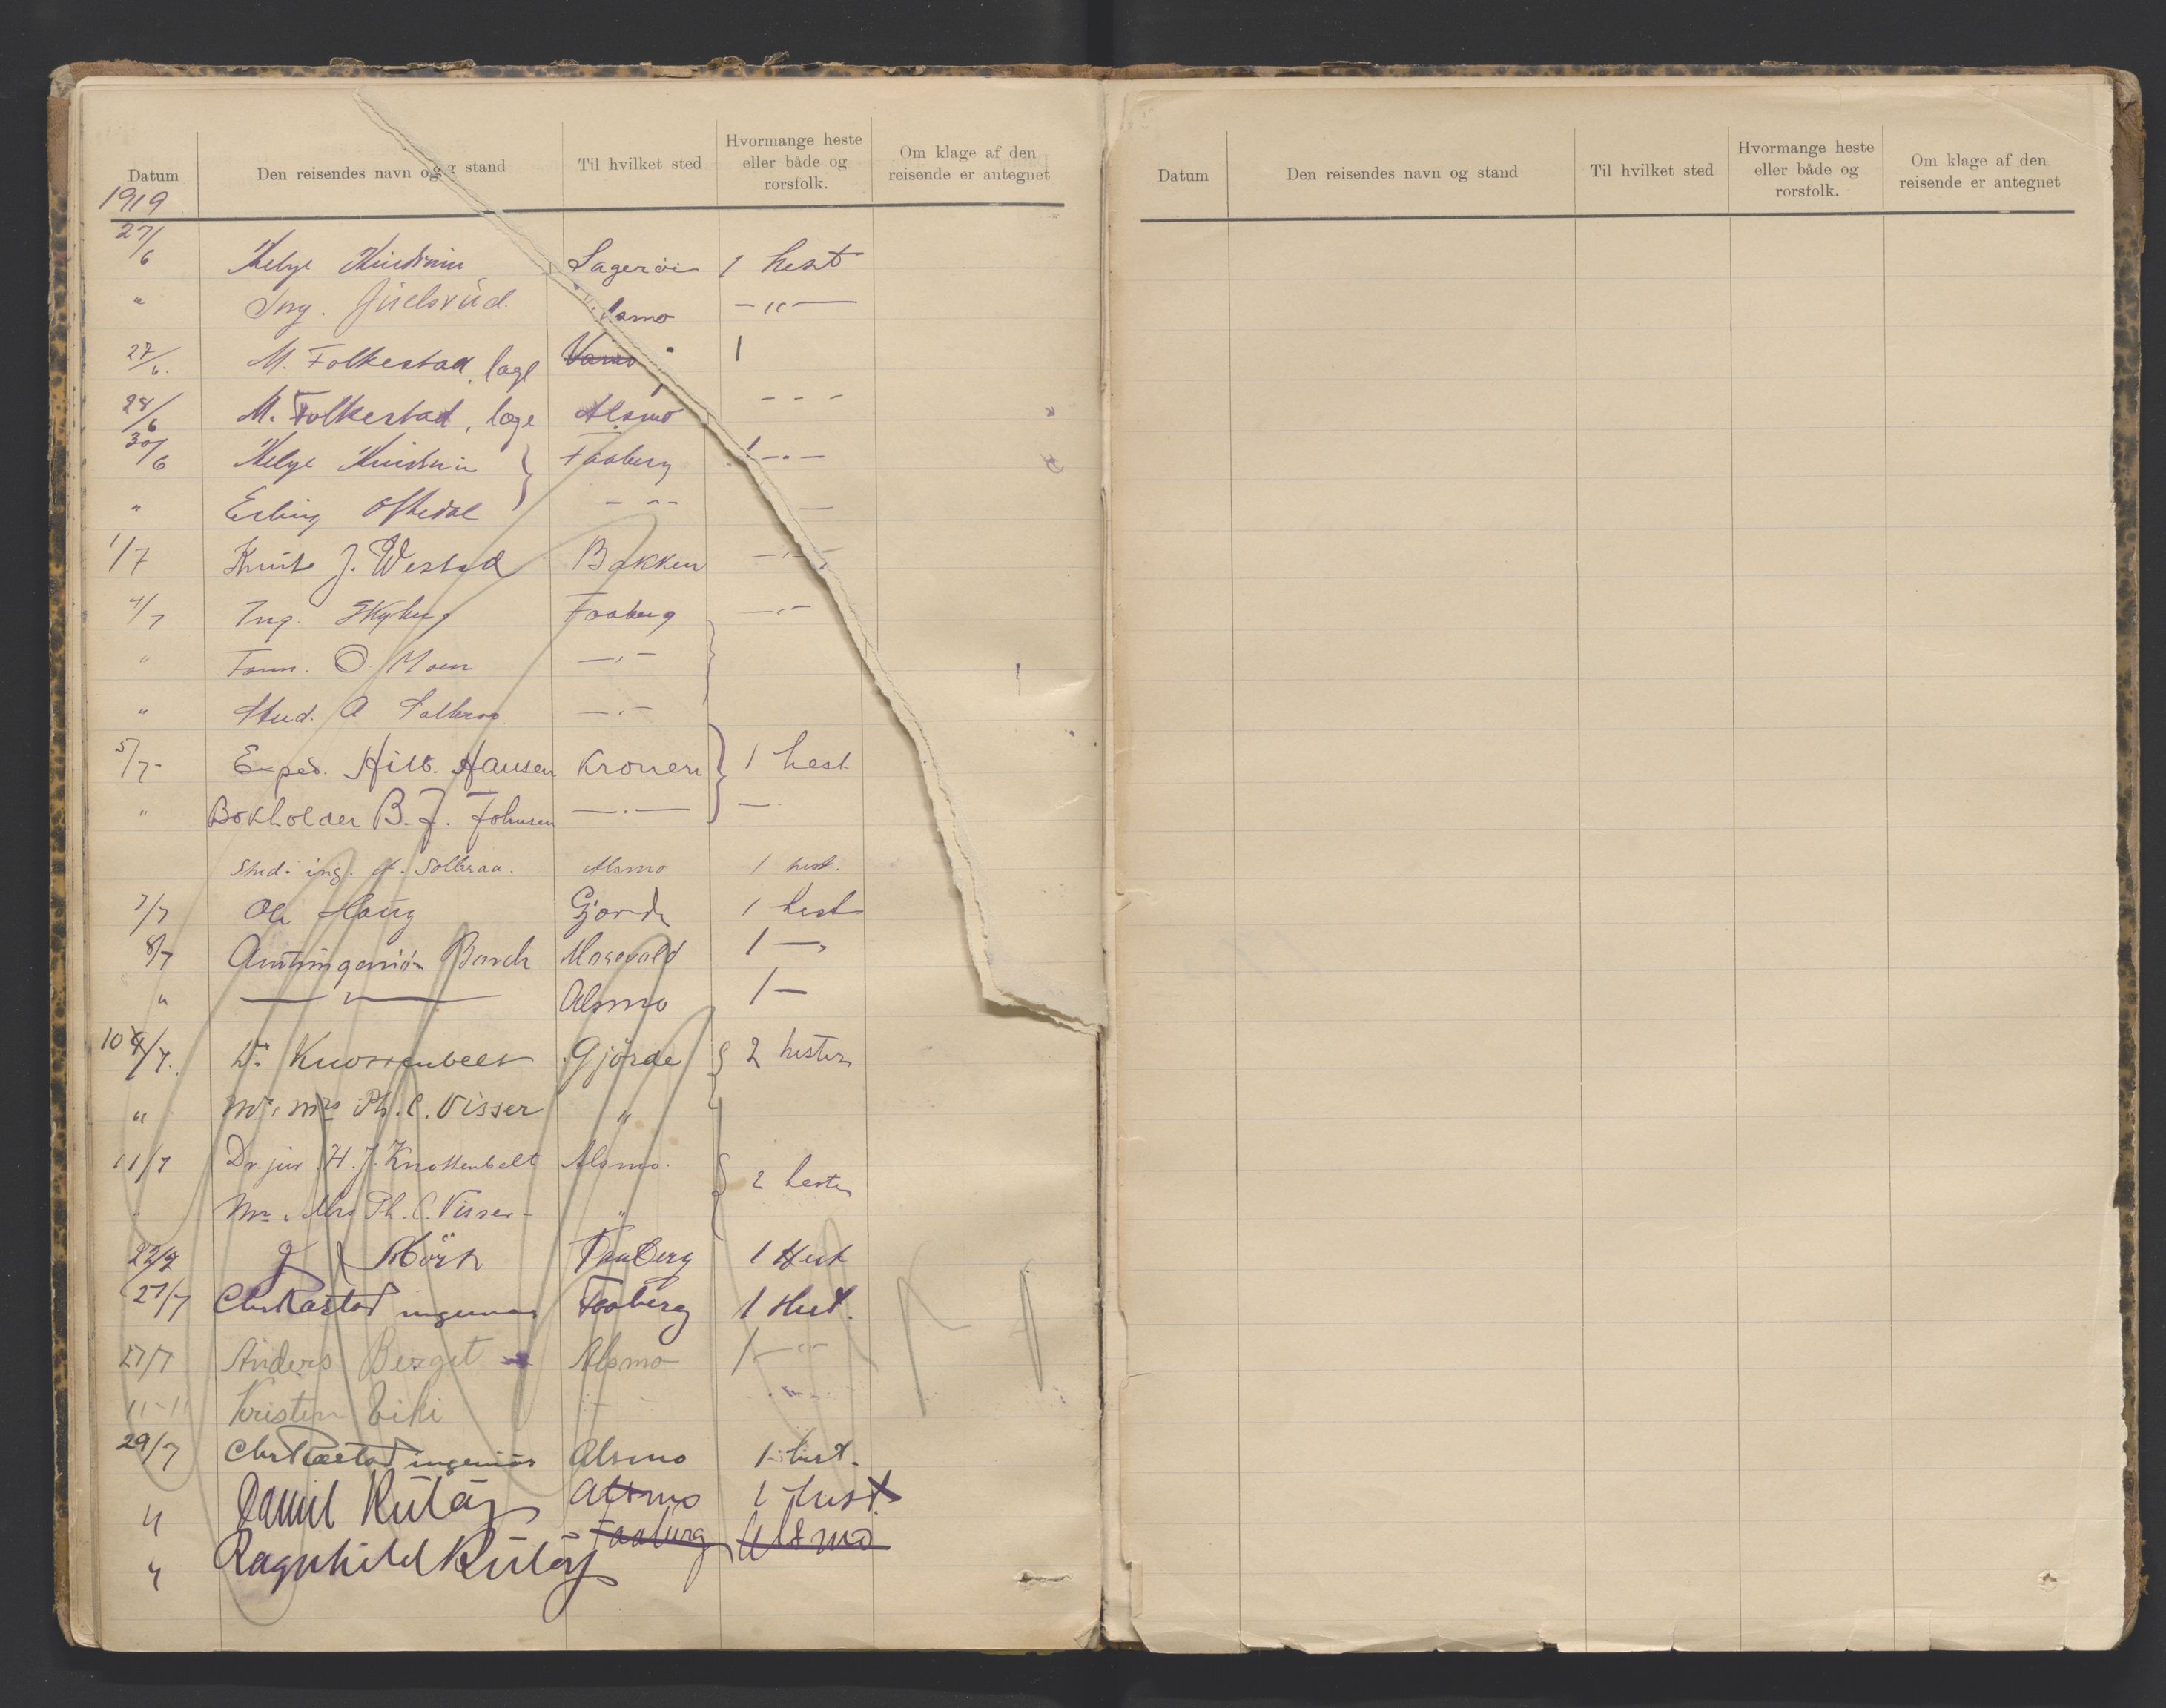 Datum Den reisendes navn og stand Til hvilket sted Hvormange heste eller både og rorsfolk. Om klage af den reisende er antegnet
1919
27/6 Helge 1 hest
" Ing. Gjelsvid. Alsmo -"-
27/6. M. Folkestad, læge 1
28/6 M. Folkestad, læge Alsmo - - -
30/6 Helge Faaberg 1 - " -
" Erling Oftedal - " -
1/7 Knut J. Westad Bakken - " -
4/7 Ing. Skyberg Faaberg - " -
" O. Moen - " -
" Stud. A Solbraa - " -
5/7- Exped. Hilb. Hansen Kronen 1 hest
" Bokholder B. J. Johnsen - . - -
Stud. ing. A. Solbraa. Alsmo 1 hest.
7/7 Ole Haug Gjorde 1 hest
8/7 Amtingeniör 1 - "
" - " - Alsmo 1 -
10/7. Dr. Knottenbelt Gjörde 2 hester
" Mr. Mrs Ph. C. Visser "
11/7 Dr. jur. H. J. Knottenbelt Alsmo. 2 hester
" Mr. Mrs Ph. C. Visser - "
22/7 Mörk Faaberg 1 Hest
27/7 Chr Rastad ingeniör Faaberg 1 Hest.
27/7 Anders Berget Alsmo 1 - " -
11-11 Kristen
29/7 Chr Rastad ingeniör Alsmo 1 hest.
" Daniel Alsmo 1 hest
" Ragnhild Faaberg Alsmo
Datum Den reisendes navn og stand Til hvilket sted Hvormange heste eller både og rorsfolk. Om klage af den reisende er antegnet